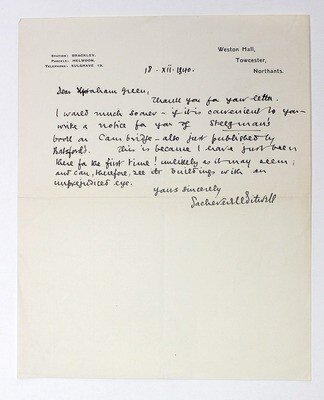 STATION: BRACKLEY.
PARCELS: HELMDON.
TELEPHONE: SULGRAVE 15.
Weston Hall,
Towcester,
Northants.
18 - XII. 1940.
Dear Graham Green,
Thank you for your letter.
I would much sooner - if it is convenient to you -
write a notice for you of Steegman's
book on Cambridge - also just published by
Batsford's. This is because I have just been
there for the first time! unlikely as it may seem;
and can, therefore, see its buildings with an
unprejudiced eye.
Yours sincerely
Sacheverell Sitwell